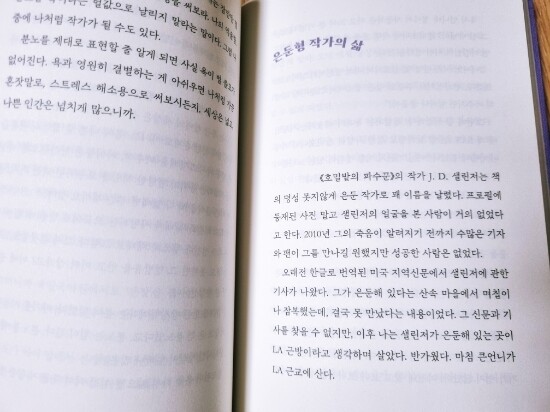 써보라.
헐값으로 날리지 말라는 말이다.
중에 나처럼 작가가 될 수도 있다.
분노를 제대로 표현할 줄 알게 되면 사실 욕이
없어진다. 욕과 영원히 결별하는 게 아쉬우면 나처럼
혼잣말로, 스트레스 해소용으로 써보시든지. 세상은 넓고
나쁜 인간은 넘치게 많으니까.
은둔형 작가의 삶
《호밀밭의 파수꾼》의 작가 J. D. 샐린저는 책
의 명성 못지않게 은둔 작가로 꽤 이름을 날렸다. 프로필에
등재된 사진 말고 샐린저의 얼굴을 본 사람이 거의 없었다
고 한다. 2010년 그의 죽음이 알려지기 전까지 수많은 기자
와 팬이 그를 만나길 원했지만 성공한 사람은 없었다.
오래전 한글로 번역된 미국 지역신문에서 샐린저에 관한
기사가 나왔다. 그가 은둔해 있다는 산속 마을에서 며칠이
나 잠복했는데, 결국 못 만났다는 내용이었다. 그 신문과 기
사를 찾을 수 없지만, 이후 나는 샐린저가 은둔해 있는 곳이
LA 근방이라고 생각하며 살았다. 반가웠다. 마침 큰언니가
LA 근교에 산다.